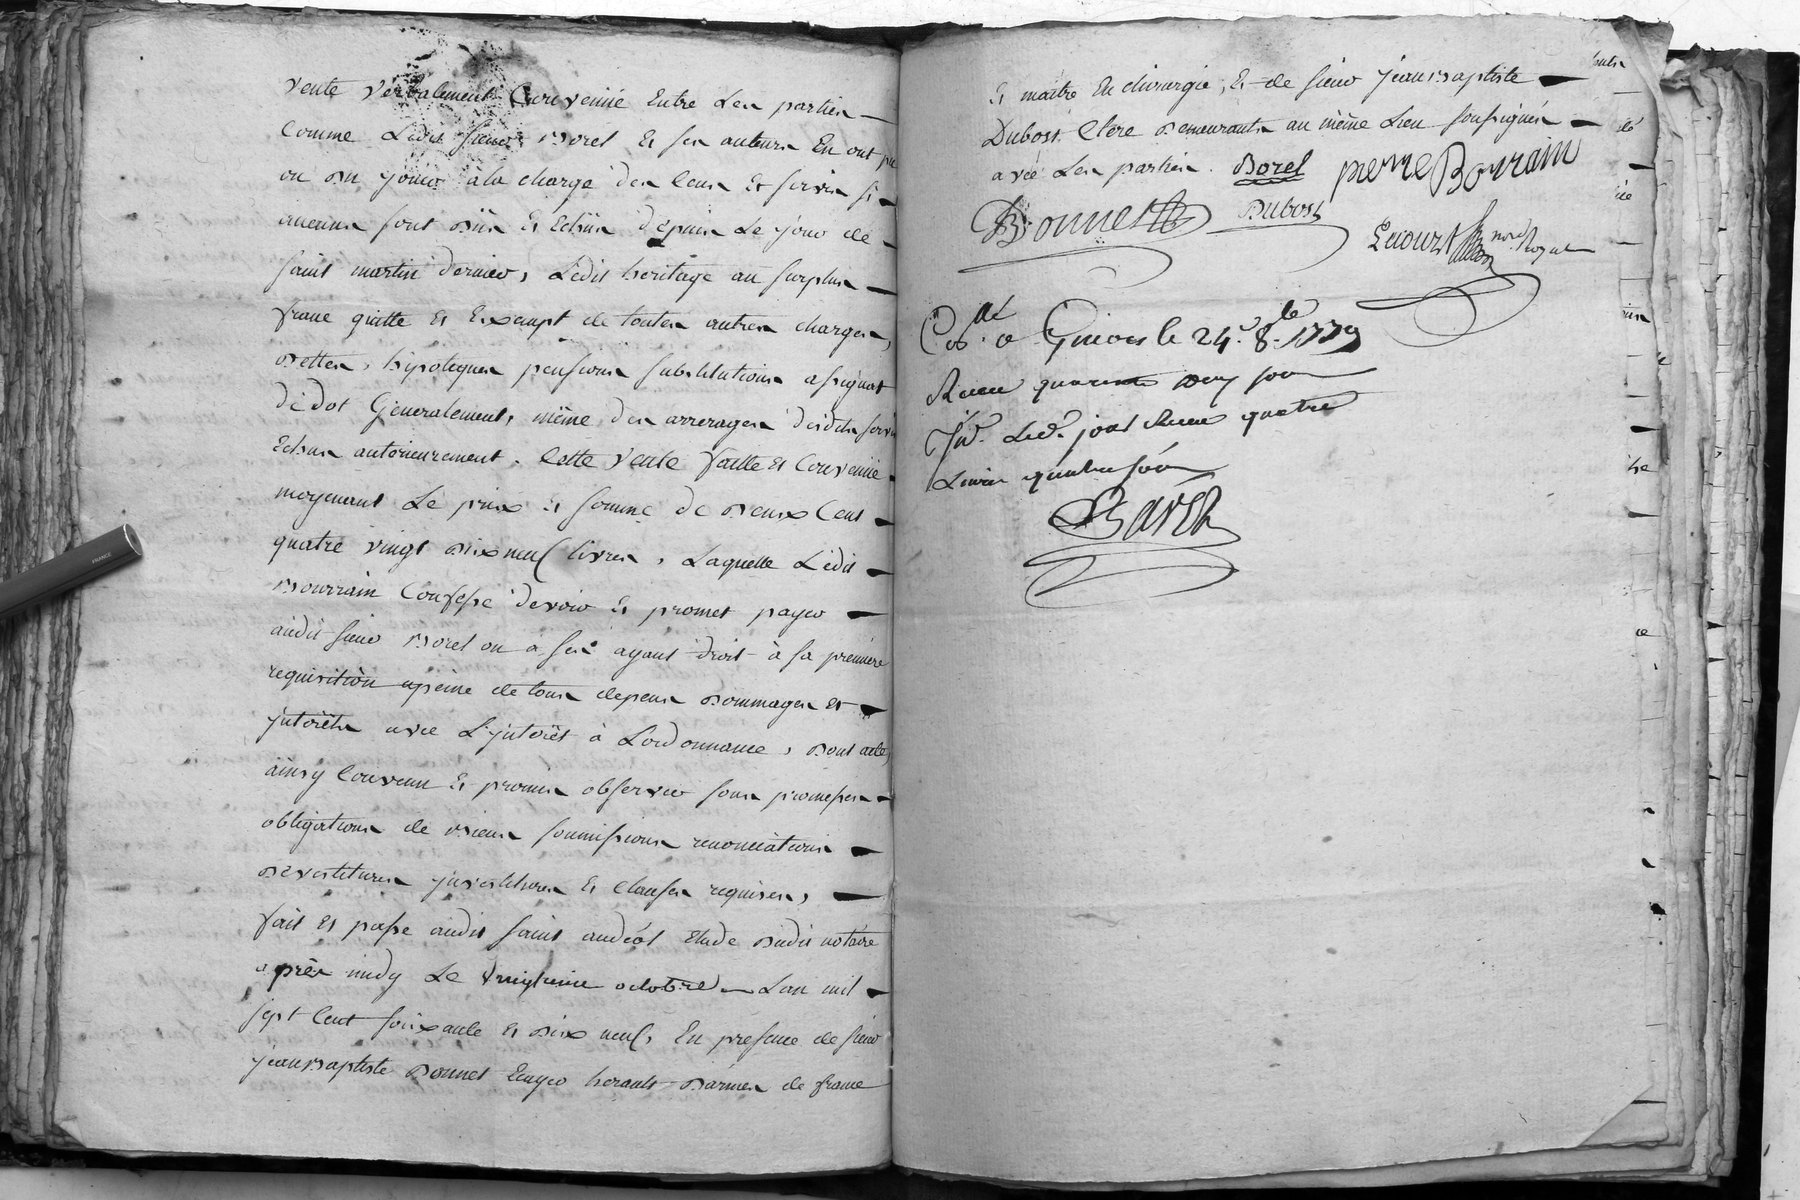 vente verbalement Convenüe Entre Les parties
Comme Ledit sieur Borel Et ses auteurs En ont pu
ou du jouir à la charge des Cens Et servis si
aucuns sont düs Et Echus depuis Le jour de
saint martin dernier, Ledit heritage au surplus
franc quitte Et Exempt de toutes autres charges,
dettes, hipoteques pensions substitutions assignat
de dot Generalement, même des arrerages desdits servis
Echus anterieurement. Cette vente faitte Et Convenüe
moyenant Le prix Et somme de deux Cent
quatre vingt dix neuf livres, Laquelle Ledit
Bourrain Confesse devoir Et promet payer
audit sieur Borel ou à ses ayant droit à sa premiere
requisition apeine de tous depens dommages Et
jnterêts avec L'jnterêt à L'ordonnance, dont acte,
ainsy Convenu Et promis observer sous promesses
obligations de biens soumissions renonciations
devestitures jnvestitures Et clauses requises,
fait Et passé audit saint andéol Etude dudit notaire
après midy Le vingtieme octobre Lan mil
sept Cent soixante Et dix neuf, En presence de sieur
jean Baptiste Bonnet Ecuyer herault d'armes de france
Et maitre En chirurgie, Et de sieur jean Baptiste
Dubost Clerc demeurants au même Lieu soussignés
avec Les parties. Borel pierre Bourrain
Bonnet Dubost
Lecourt nore Royal
Con.lé a Givors le 24. 8.bre 1779
Receu quarante deux sous
Jn. Led. jour Receu quatre
Livres quatre sous